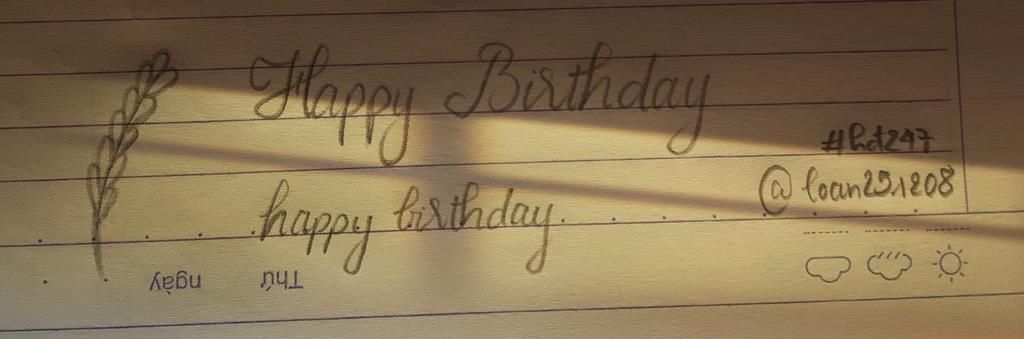 Happy Birthday
#hd247
@loan251208
happy birthday
Thứ ngày